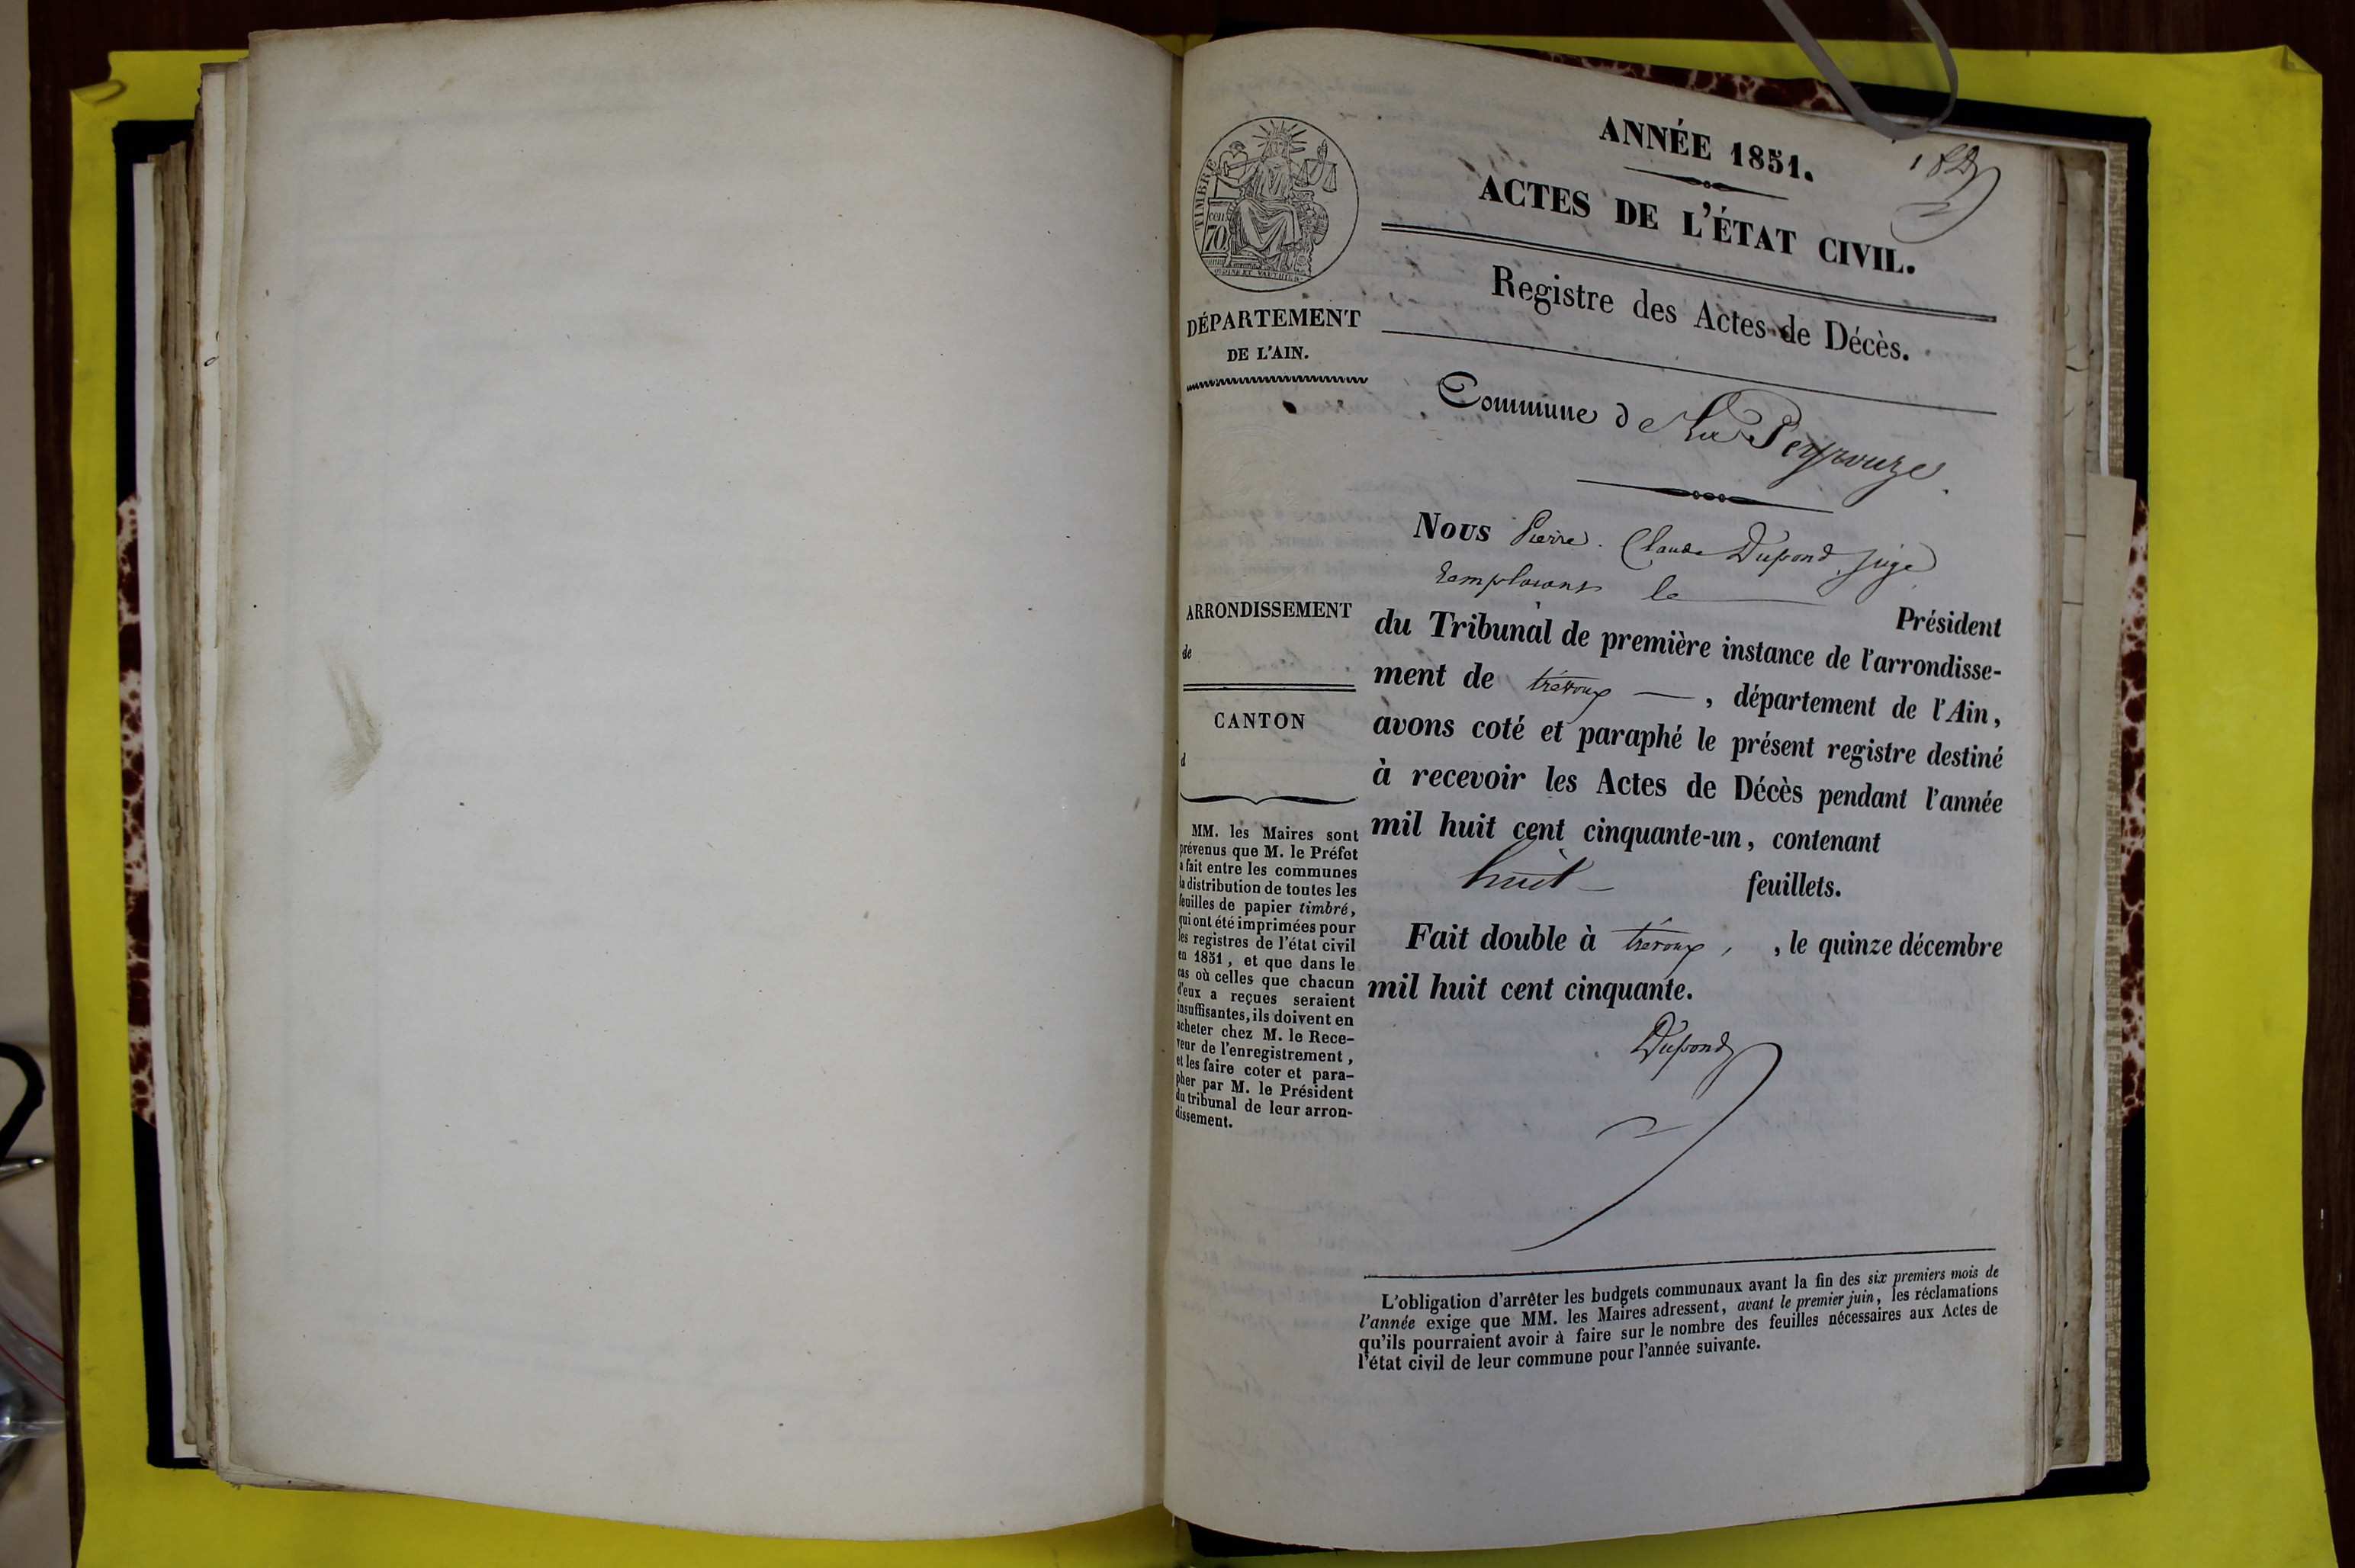 TIMBRE
cen.
70
ANNÉE 1851.
ACTES DE L'ÉTAT CIVIL.
Registre des Actes de Décès.
DÉPARTEMENT
DE L'AIN.
Commune de La Peyrouze
Nous Pierre Claude Dupond juge
remplaçant le
Président
du Tribunal de première instance de l'arrondisse-
ment de trévoux — , département de l'Ain,
avons coté et paraphé le présent registre destiné
à recevoir les Actes de Décès pendant l'année
mil huit cent cinquante-un, contenant
huit — feuillets.
Fait double à trévoux , , le quinze décembre
mil huit cent cinquante.
Dupond
ARRONDISSEMENT
de
CANTON
d
MM. les Maires sont
prévenus que M. le Préfet
a fait entre les communes
la distribution de toutes les
feuilles de papier timbré,
qui ont été imprimées pour
les registres de l'état civil
en 1851, et que dans le
cas où celles que chacun
d'eux a reçues seraient
insuffisantes, ils doivent en
acheter chez M. le Rece-
veur de l'enregistrement,
et les faire coter et para-
pher par M. le Président
du tribunal de leur arron-
dissement.
L'obligation d'arrêter les budgets communaux avant la fin des six premiers mois de
l'année exige que MM. les Maires adressent, avant le premier juin, les réclamations
qu'ils pourraient avoir à faire sur le nombre des feuilles nécessaires aux Actes de
l'état civil de leur commune pour l'année suivante.